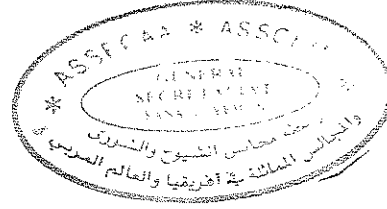 * ASSECAA * ASSEC
GENERAL
SECRETARIAT
SANA'A
مجالس الشيوخ والشورى
والمجالس المماثلة في أفريقيا والعالم العربي